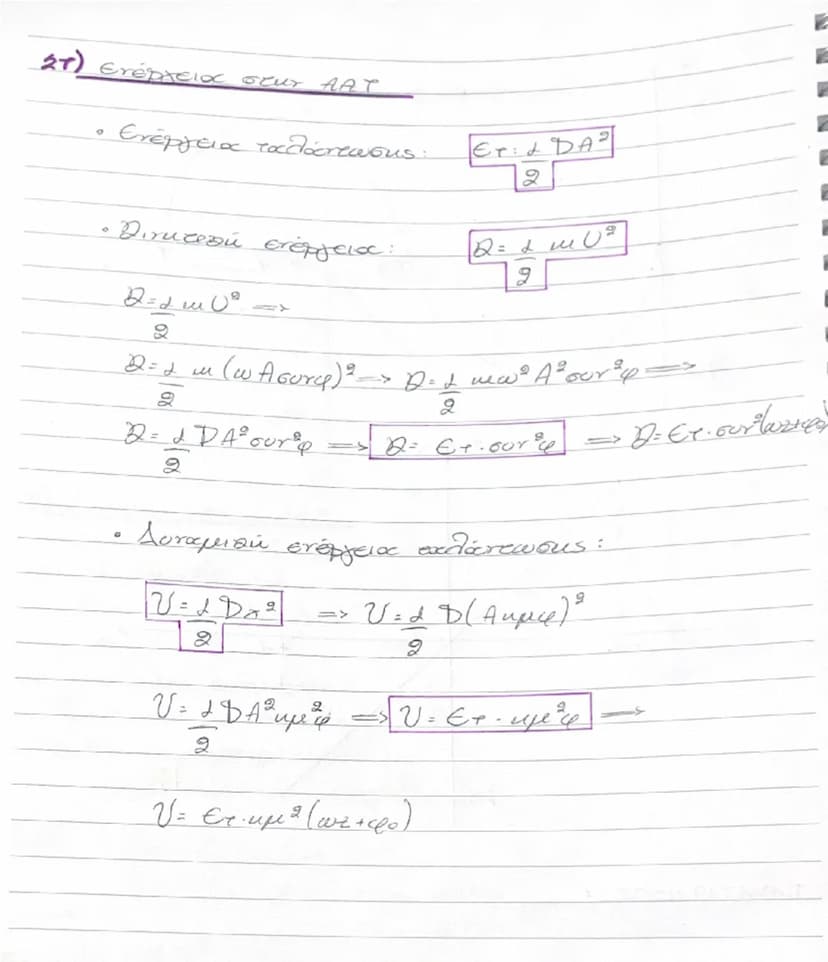 ΣΤ) Ενέργειες στην ΑΑΤ
• Ενέργεια ταλάντωσης: Ετ = 1/2 DA²
• Κινητική ενέργεια: Κ = 1/2 mυ²
Κ = 1/2 mυ² =>
Κ = 1/2 m(ωAσυνφ)² => Κ = 1/2 mω²A²συν²φ =>
Κ = 1/2 DA²συν²φ => Κ = Ετ·συν²φ => Κ = Ετ·συν²(ωt+φ₀)
• Δυναμική ενέργεια ταλάντωσης:
U = 1/2 Dx² => U = 1/2 D(Aημφ)²
U = 1/2 DA²ημ²φ => U = Ετ·ημ²φ =>
U = Ετ·ημ²(ωt+φ₀)